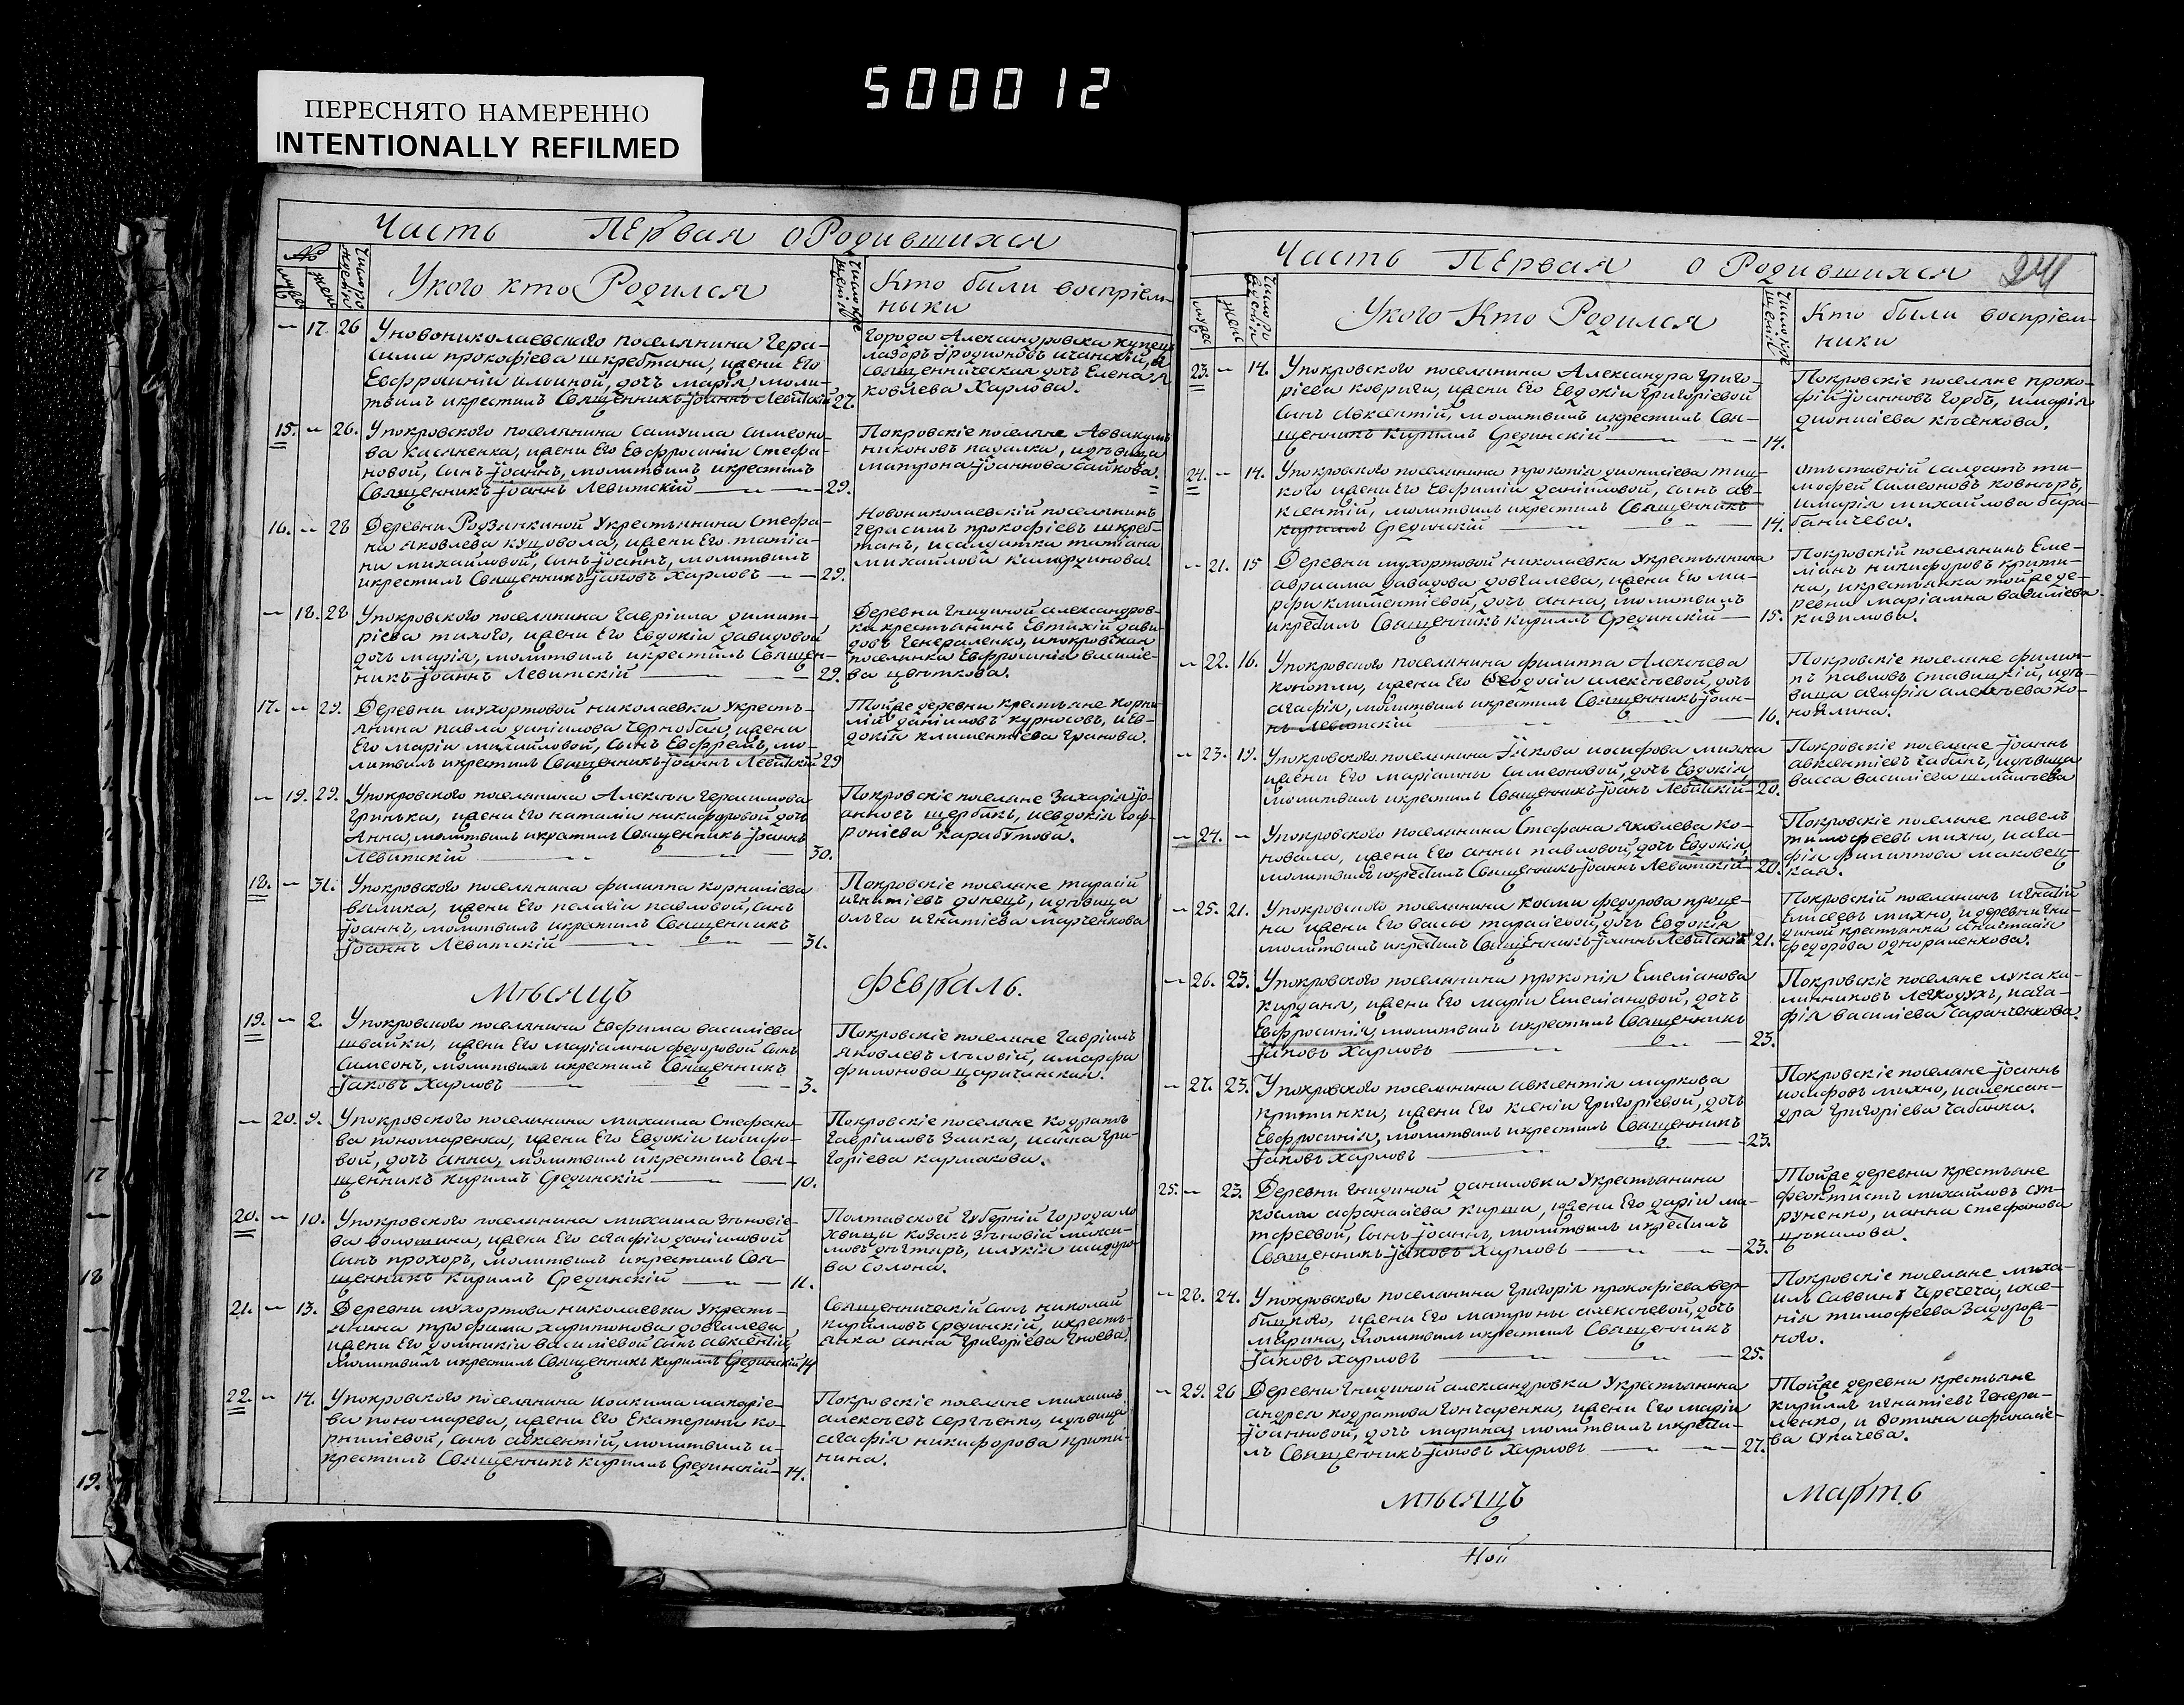 500012
ПЕРЕСНЯТО НАМЕРЕННО
INTENTIONALLY REFILMED
Часть Первая о Родившихся
№
муже
жен
Число рождения
У кого кто Родился
Число крещения
Кто были воспріем-
ники
17. 26 У новониколаевского поселянина Гера-
сима прокофіева шкребтана, и жены Его
Евфросиніи ильиной, дочь марія моли-
твилъ и крестилъ Священникъ Іоаннъ Левитскій 27.
Города Александровска купецъ
лазоръ Иродионовъ
священническая дочь Елена Я
ковлева Харлова.
15. 26. У покровского поселянина Самуила Симеоно-
ва касяненка, и жены Его Евфросиніи Стефа-
новой, сынъ Іоаннъ, молитвилъ и крестилъ
Священникъ Іоаннъ Левитскій 29.
Покровскіе поселяне Аввакумъ
никоновъ падалка, и девица
матрона Іоаннова
16. 28 Деревни Родзянкиной У крестьянина Стефа-
на яковлева кущовола, и жены Его татіа-
ны михайловой, сынъ Іоаннъ, молитвилъ
и крестилъ Священникъ Іаковъ Харловъ 29.
Новониколаевскій поселянинъ
Герасимъ прокофіевъ шкреб-
танъ, и салдатка татіана
михайлова
18. 28 У покровского поселянина Гавріила димит-
ріева тихого, и жены Его Евдокіи давидовой
дочь марія, молитвилъ и крестилъ Священ-
никъ Іоаннъ Левитскій 29.
Деревни Гнидиной александров-
ка крестьянинъ Евтихій дави-
довъ Генераленко, и покровская
поселянка Евфросинія василіе-
ва цветкова.
17. 29. Деревни мухортовой николаевка У кресть-
янина павла даніилова Чернобая, и жены
Его маріи михайловой, сынъ Евфремъ, мо-
литвилъ и крестилъ Священникъ Іоаннъ Левитскій 29
Тойже деревни крестьяне корни-
лій даніиловъ курносовъ, и Ев-
докія климентіева Гранова.
19. 29. У покровского поселянина Алексея Герасимова
Гринька, и жены Его наталіи никифоровой дочь
Анна, молитвилъ и крестилъ Священникъ Іоаннъ
Левитскій 30.
Покровскіе поселяне Захарія Іо-
анновъ щербакъ, и евдокія соф-
роніева карабутова.
18. 31. У покровского поселянина филиппа корниліева
вялика, и жены Его пелагіи павловой, сынъ
Іоаннъ, молитвилъ и крестилъ Священникъ
Іоаннъ Левитскій 31.
Покровскіе поселяне тарасій
игнатіевъ донецъ, и девица
ольга игнатіева марченкова
Месяцъ Февраль.
19. 2. У покровского поселянина Евфима василіева
швайки, и жены Его маріамны федоровой сынъ
Симеонъ, молитвилъ и крестилъ Священникъ
Іаковъ Харловъ 3.
Покровскіе поселяне Гавріилъ
яковлевъ и марфа
филонова царичанская.
20. 9. У покровского поселянина михаила Стефано-
ва пономаренка, и жены Его Евдокіи иосифо-
вой, дочь анна, молитвилъ и крестилъ Свя-
щенникъ кириллъ Срединскій 10.
Покровскіе поселяне кодратъ
Гавріиловъ Заика, и анна Гри-
горіева кармакова.
20. 10. У покровского поселянина михаила Зеновіе-
ва волошина, и жены Его агафіи даніиловой
сынъ прохоръ, молитвилъ и крестилъ Свя-
щенникъ кириллъ Срединскій 11.
Полтавской Губерніи Города ло
хвицы козакъ Зеновій макси-
мовъ дегтяръ, и лукія
ва Солона.
21. 13. Деревни мухортова николаевка У кресть-
янина трофима харитонова довгилева
и жены Его домникіи василіевой сынъ авксентій
молитвилъ и крестилъ Священникъ кириллъ Срединскій 14
Священническій сынъ николай
кирилловъ Срединскій, и кресть-
янка анна Григоріева Гноева
22. 14. У покровского поселянина иоакима макаріе-
ва пономарева, и жены Его Екатерины ко-
рниліевой, сынъ авксентій, молитвилъ и-
крестилъ Священникъ кириллъ Срединскій 14.
Покровскіе поселяне михаилъ
алексеевъ Сергеенко, и девица
агафія никифорова крити-
нина.
Часть Первая о Родившихся
241
муже
жен
Число рождения
У кого Кто Родился
Число крещения
Кто были воспріем-
ники
23. 14. У покровского поселянина Александра Григо-
ріева ковриги, и жены Его Евдокіи Григоріевой
Сынъ Авксентій, молитвилъ и крестилъ Свя-
щенникъ кириллъ Срединскій 14.
Покровскіе поселяне проко-
фій Іоанновъ Горбъ, и марія
дионисіева
24. 14. У покровского поселянина прокопія дионисіева тиц-
кого и жены Его Евфиміи даніиловой, сынъ ав-
ксентій, молитвилъ и крестилъ Священникъ
кириллъ Срединскій 14.
отъставній салдатъ ти-
мофей Симеоновъ
и марія михайлова бара-
баничева.
21. 15 Деревни мухортовой николаевка У крестьянина
авраама давидова довгилева, и жены Его ма-
рфы климентіевой, дочь анна, молитвилъ
и крестилъ Священникъ кириллъ Срединскій 15.
Покровскій поселянинъ Еме-
ліанъ никифоровъ крити-
на, и крестьянка тойже де-
ревни маріамна василіева
кизимова.
22. 16. У покровского поселянина филиппа Алексеева
конопли, и жены Его Феодосіи алексеевой, дочь
агафія, молитвилъ и крестилъ Священникъ Іоан-
нъ Левитскій 16.
Покровскіе поселяне филип-
пъ павловъ ставицкій, и де-
вица агафія алексеева ко-
ноплина.
23. 19. У покровского поселянина Іякова иосифова михна
и жены Его маріамны Симеоновой, дочь Евдокія,
молитвилъ и крестилъ Священникъ Іоаннъ Левитскій 20.
Покровскіе поселяне Іоаннъ
авксентіевъ Чабанъ, и девица
васса василіева шмалчева
24. У покровского поселянина Стефана Яковлева ко-
новала, и жены Его анны павловой, дочь Евдокія,
молитвилъ и крестилъ Священникъ Іоаннъ Левитскій 20.
Покровскіе поселяне павелъ
тимофеевъ михно, и ага-
фія филиппова маковец-
кая.
25. 21. У покровского поселянина космы федорова проце-
на и жены Его вассы тарасіевой, дочь Евдокія
молитвилъ и крестилъ Священникъ Іоаннъ Левитскій 21.
Покровскій поселянинъ игнатій
Елисеевъ михно, и деревни гни-
диной крестьянка анастасія
федорова однораленкова.
26. 23. У покровского поселянина прокопія Емеліанова
кирданя, и жены Его маріи Емеліановой, дочь
Евфросинія, молитвилъ и крестилъ Священникъ
Іаковъ Харловъ 23.
Покровскіе поселяне лука ка-
линниковъ Легкодухъ, и ага-
фія василіева Саранченкова.
27. 23. У покровского поселянина авксентія маркова
критинки, и жены Его ксеніи Григоріевой, дочь
Евфросинія, молитвилъ и крестилъ Священникъ
Іаковъ Харловъ 23.
Покровскіе поселяне Іоаннъ
иосифовъ михно, и алексан-
дра Григоріева Чабанка.
25. 23. Деревни Гнидиной даниловки У крестьянина
космы афанасіева кирши, и жены Его даріи ма-
тфеевой, сынъ Іоаннъ, молитвилъ и крестилъ
Священникъ Іаковъ Харловъ 23.
Тойже деревни крестьяне
феоктистъ михайловъ суп-
руненко, и анна стефанова
28. 24. У покровского поселянина Григорія прокофіева вер-
бицкого, и жены Его матроны алексеевой, дочь
марина, молитвилъ и крестилъ Священникъ
Іаковъ Харловъ 25.
Покровскіе поселяне миха-
илъ Саввинъ Черегеча, и ксе-
нія тимофеева Задорож-
ного.
29. 26 Деревни Гнидиной александровка У крестьянина
андрея кодратова Гончаренка, и жены Его маріи
Іоанновой, дочь марина, молитвилъ и крести-
лъ Священникъ Іаковъ Харловъ 27.
Тойже деревни крестьяне
кириллъ игнатіевъ Генера-
ленко, и фотина афанасіе-
ва сукачева.
Месяцъ Мартъ
17
18
19.